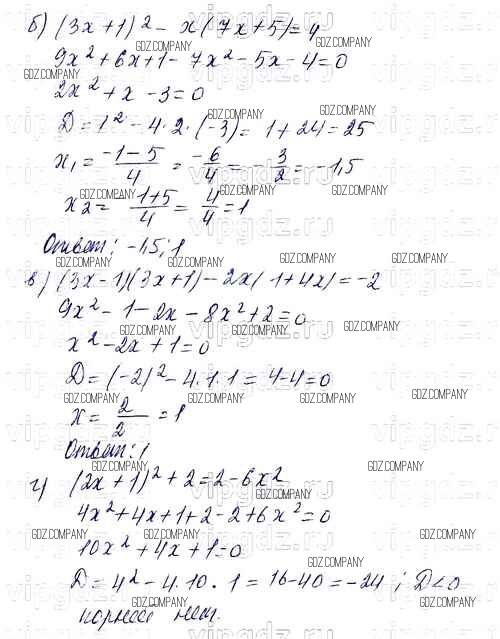 б) (3x+1)² - x(7x+5)=4
9x²+6x+1-7x²-5x-4=0
2x²+x-3=0
D=1²-4·2·(-3)=1+24=25
x₁ = (-1-5)/4 = -6/4 = -3/2 = -1,5
x2 = (-1+5)/4 = 4/4 = 1
Ответ: -1,5; 1
в) (3x-1)(3x+1)-2x(1+4x)=-2
9x²-1-2x-8x²+2=0
x²-2x+1=0
D=(-2)²-4·1·1=4-4=0
x= 2/2 =1
Ответ: 1
г) (2x+1)²+2=2-6x²
4x²+4x+1+2-2+6x²=0
10x²+4x+1=0
D=4²-4·10·1=16-40=-24; D<0
корней нет.
GDZ.COMPANY
vipgdz.ru